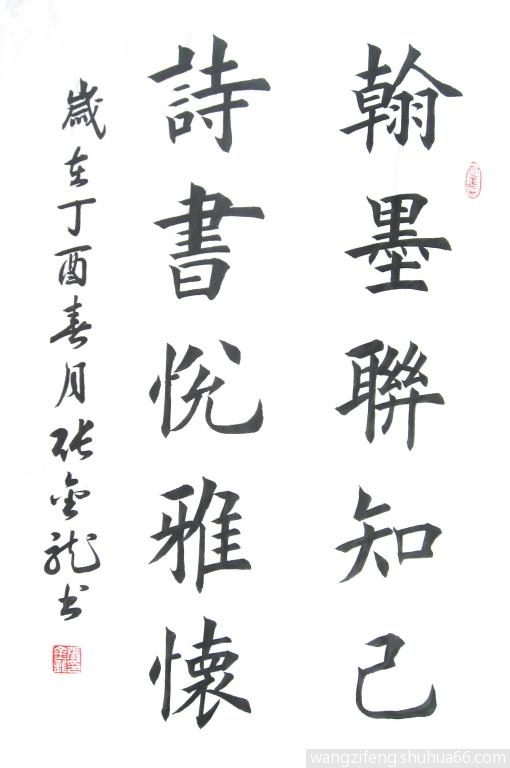 翰墨聯知己
詩書悅雅懷
歲在丁酉春月張金龍書
wangzifeng.shuhua66.com